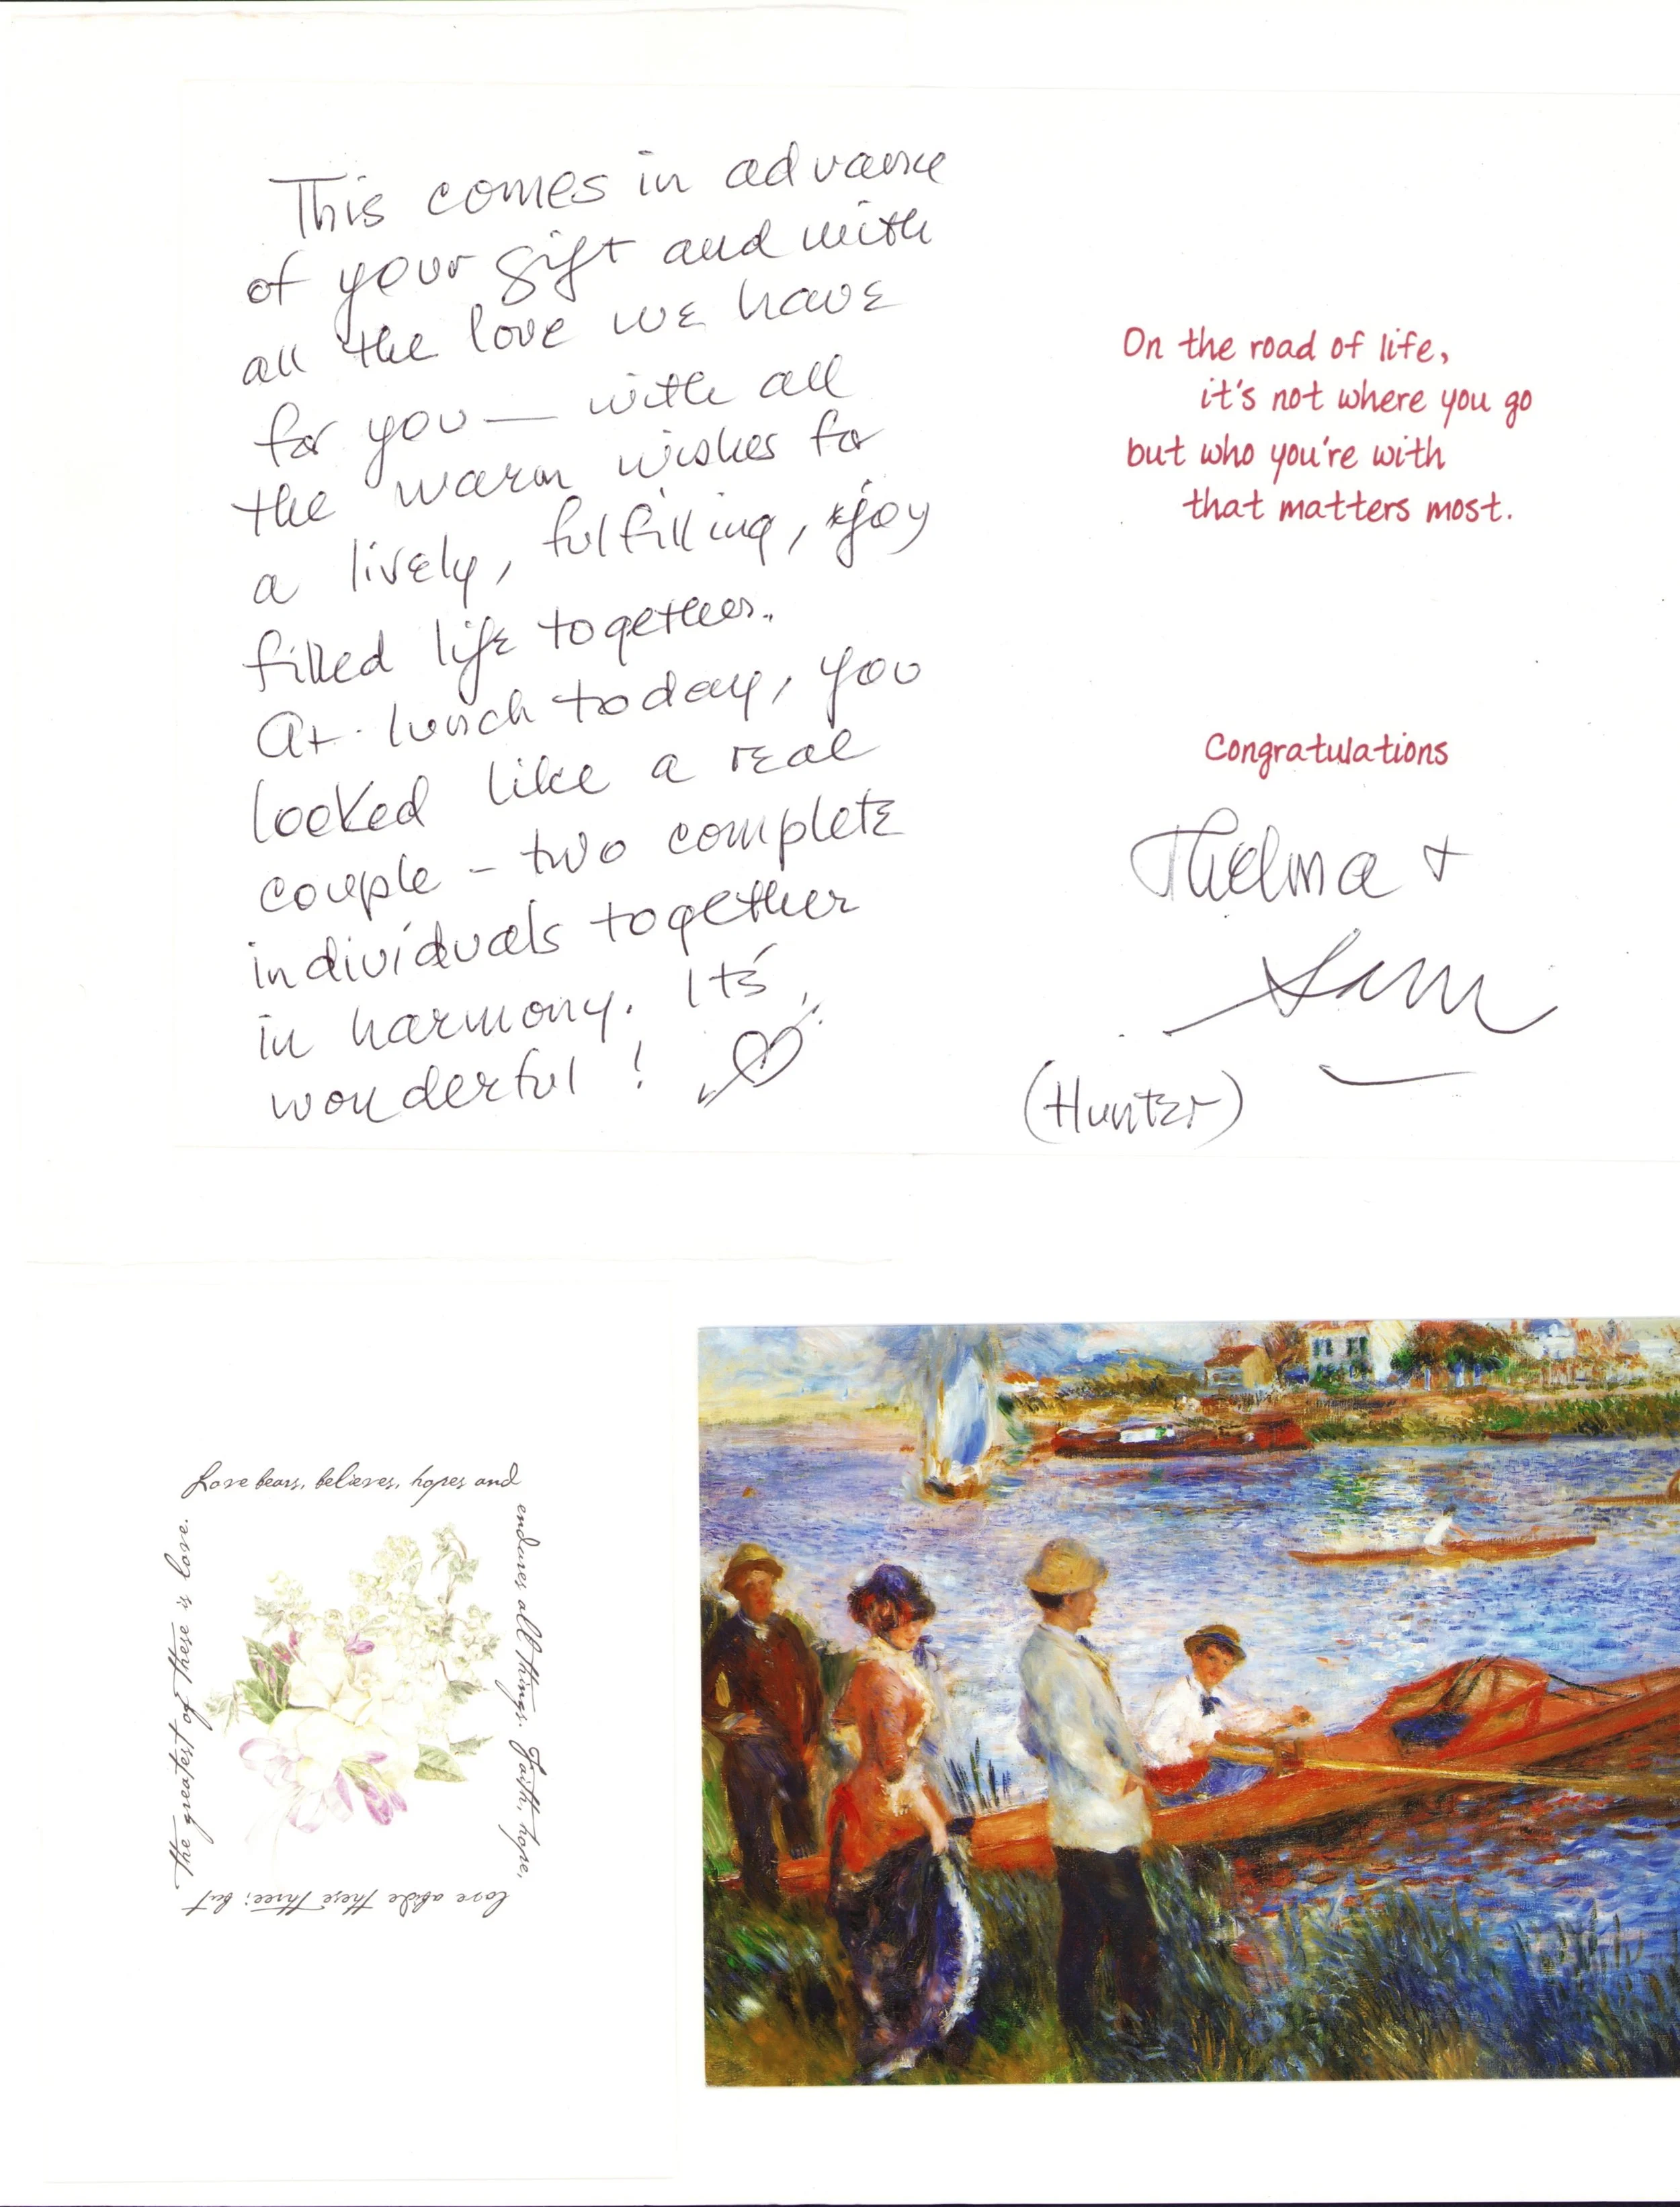 This comes in advance
of your gift and with
all the love we have
for you — with all
the warm wishes for
a lively, fulfilling, joy
filled life together.
At lunch today, you
looked like a real
couple - two complete
individuals together
in harmony. It's
wonderful!
On the road of life,
it's not where you go
but who you're with
that matters most.
Congratulations
Thelma +
Sam
(Hunter)
Love bears, believes, hopes and
endures all things. Faith, hope,
love abide these three; but
the greatest of these is love.